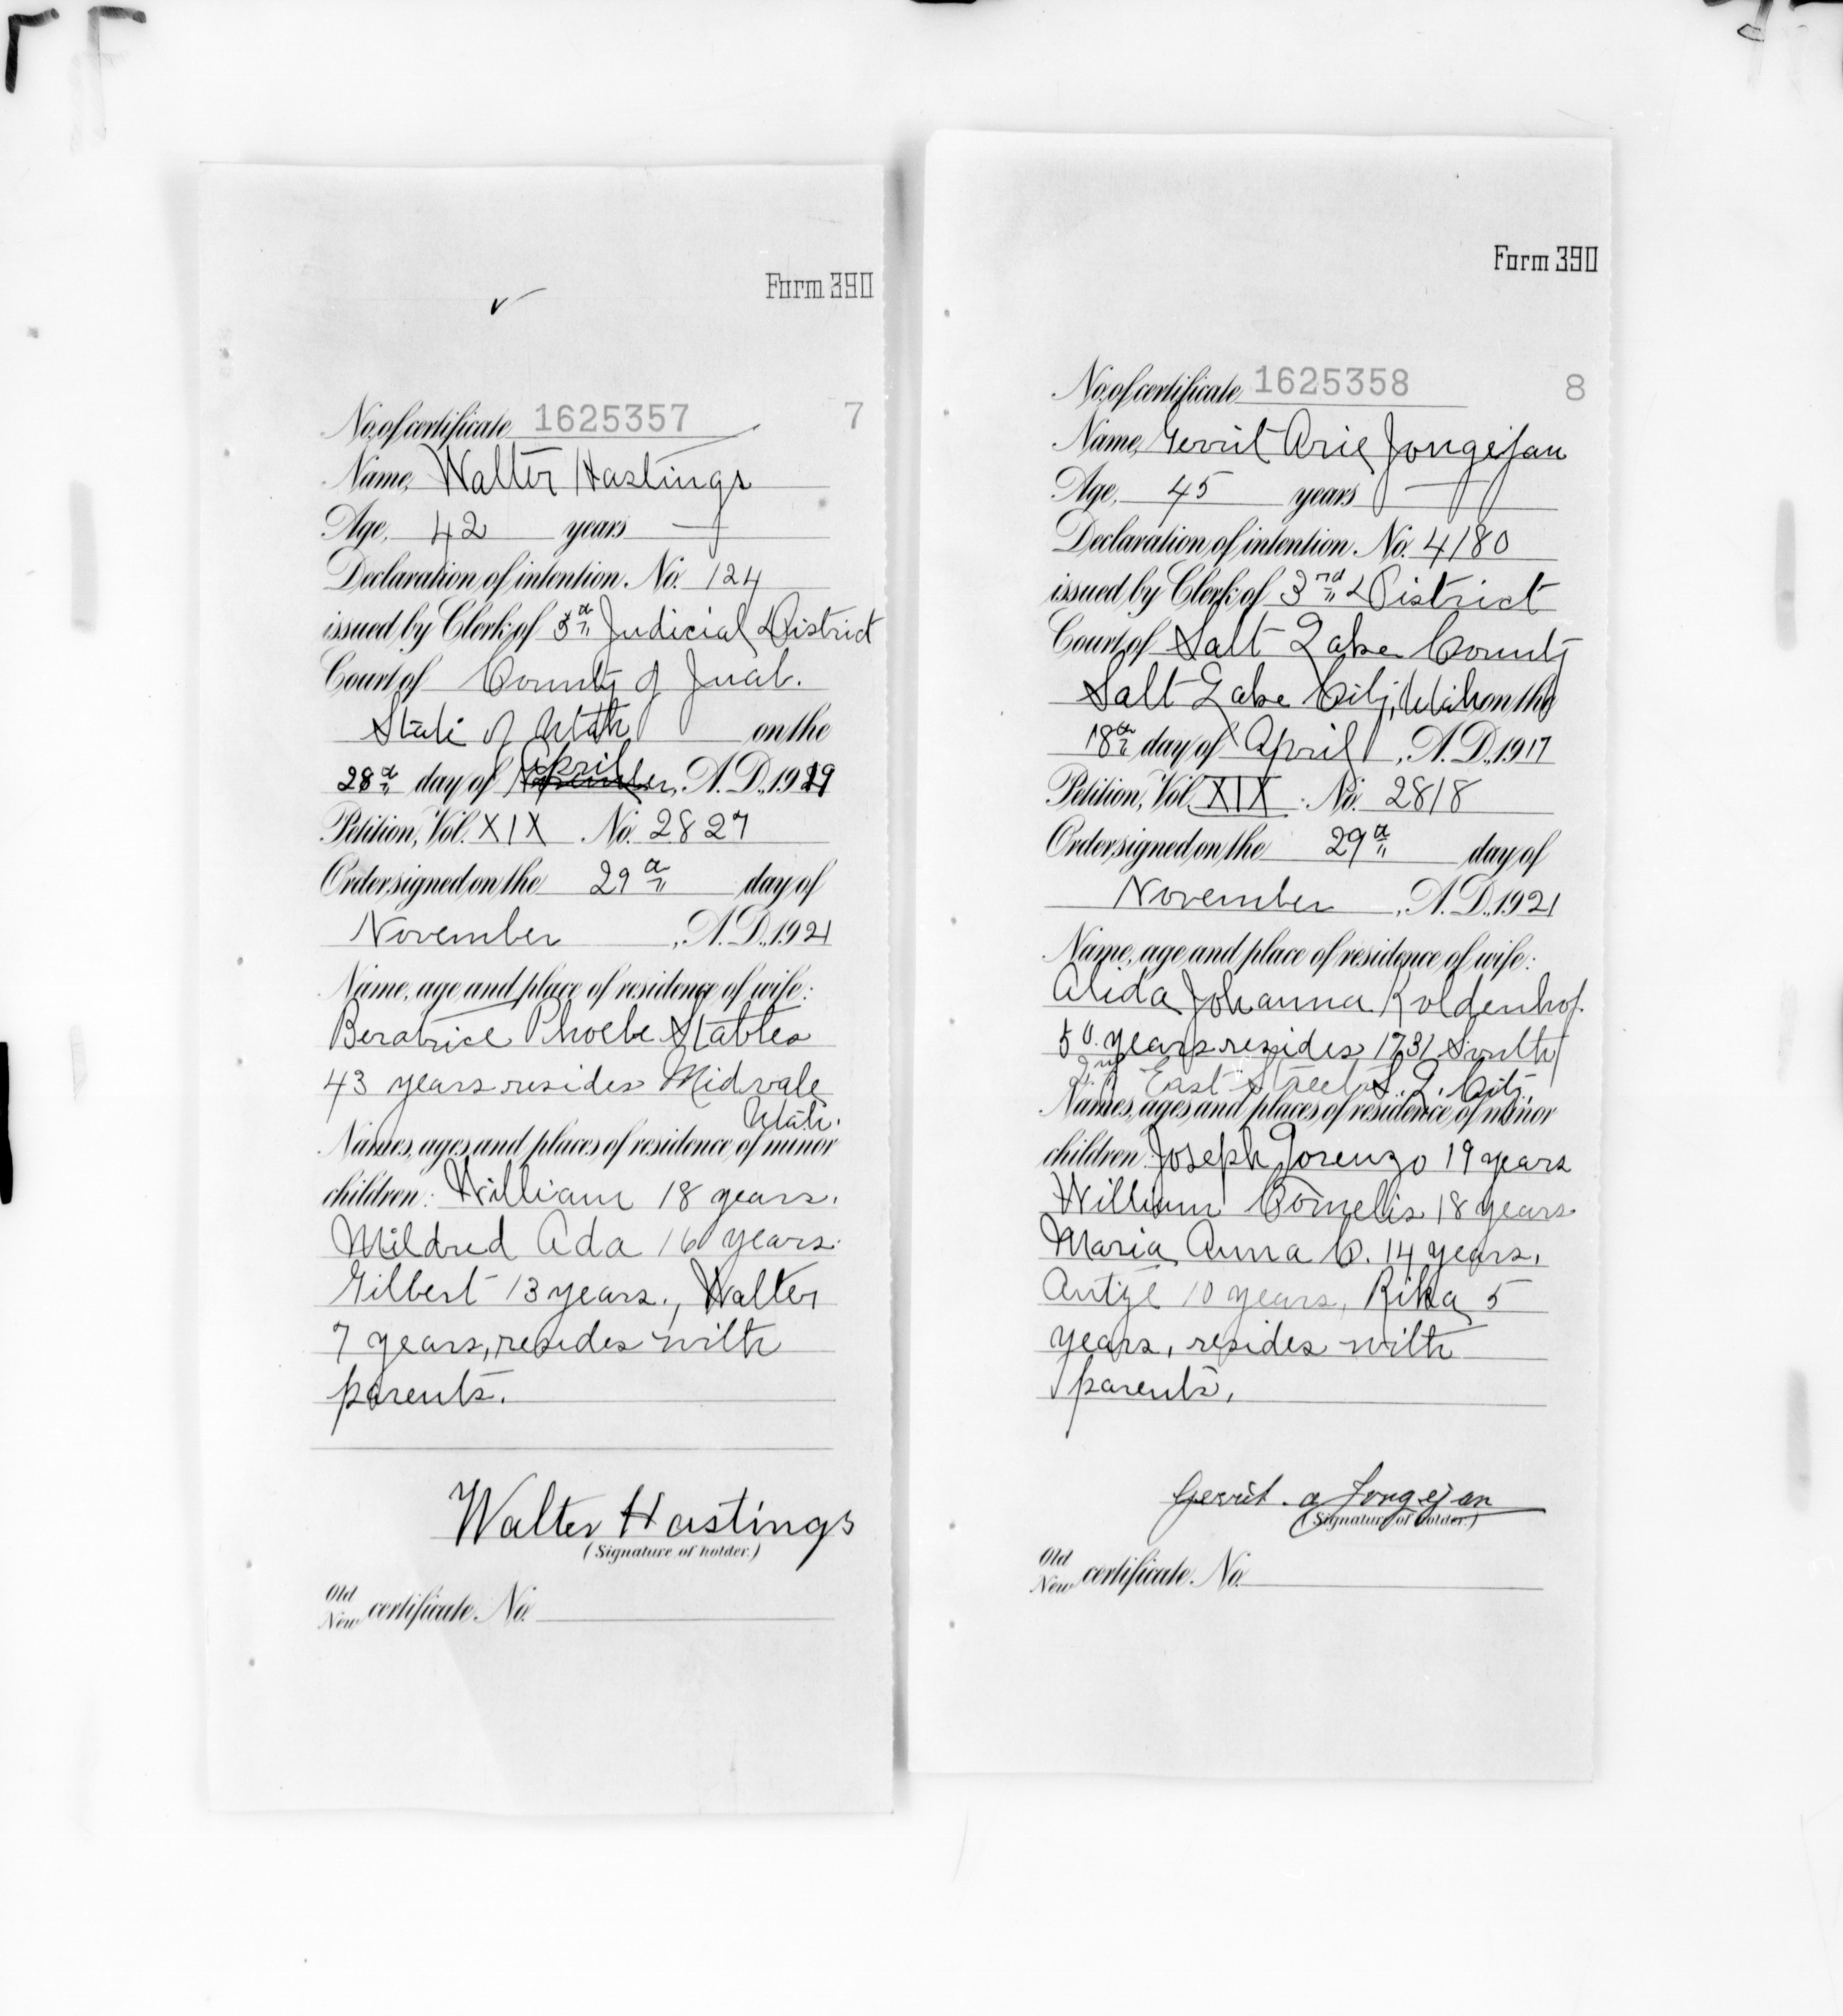 Form 390
No. of certificate 1625357 7
Name, Walter Hastings
Age, 42 years
Declaration of intention. No. 124
issued by Clerk of 5th Judicial District
Court of County of Juab.
State of Utah on the
28th day of April, A. D., 1919
Petition, Vol. XIX No. 2827
Order signed on the 29th day of
November, A. D., 1921
Name, age and place of residence of wife:
Beratrice Phoebe Stables
43 years resides Midvale
Utah.
Names, ages and places of residence of minor
children: William 18 years.
Mildred Ada 16 years.
Gilbert 13 years., Walter
7 years, resides with
parents.
Walter Hastings
(Signature of holder.)
Old
New certificate. No.
Form 390
No. of certificate 1625358 8
Name, Gerrit Arie Jongejan
Age, 45 years
Declaration of intention. No. 4180
issued by Clerk of 3rd District
Court of Salt Lake County
Salt Lake City, Utah on the
18th day of April, A. D., 1917
Petition, Vol. XIX No. 2818
Order signed on the 29th day of
November, A. D., 1921
Name, age and place of residence of wife:
Alida Johanna Koldenhof.
50 years resides 1731 South
2nd East Street S. L. City.
Names, ages and places of residence of minor
children: Joseph Lorenzo 19 years
William Cornelis 18 years
Maria Anna C. 14 years,
Antje 10 years, Rika 5
years, resides with
parents.
Gerrit a Jongejan
(Signature of holder.)
Old
New certificate. No.